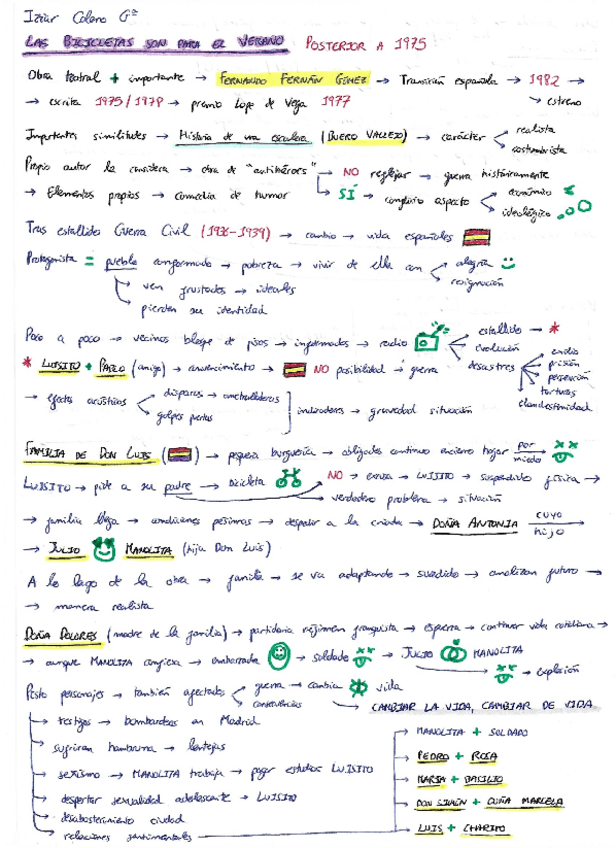 Iziar Calero Gª
LAS BICICLETAS SON PARA EL VERANO POSTERIOR A 1975
Obra teatral + importante → FERNANDO FERNÁN GÓMEZ → Transición española → 1982 →
→ escrita 1975/1978 → premio Lope de Vega 1977 → estreno
Importantes similitudes → Historia de una escalera (BUERO VALLEJO) → carácter realista
costumbrista
Propio autor la considera → obra de "antihéroes" → NO reflejar → guerra históricamente
→ Elementos propios → comedia de humor → SÍ → complejo aspecto económico
ideológico
Tras estallido Guerra Civil (1936-1939) → cambio → vida españoles
Protagonista = pueblo conformado → pobreza → vivir de ella con alegría
resignación
→ ven frustados → ideales
→ pierden su identidad
Poco a poco → vecinos bloque de pisos → informados → radio estallido → *
evolución
desastres exilio
prisión
persecución
torturas
clandestinidad
* LUISITO + PABLO (amigo) → convencimiento → NO posibilidad → guerra
→ efectos acústicos disparos → ametralladoras
golpes puertas
indicadores → gravedad situación
FAMILIA DE DON LUIS ( ) → pequeña burguesía → obligados continuo encierro hogar por miedo
LUISITO → pide a su padre → bicicleta NO → excusa → LUISITO → suspendido física →
→ verdadero problema → situación
→ familia llega → condiciones pésimas → despedir a la criada → DOÑA ANTONIA cuyo hijo
→ JULIO MANOLITA (hija Don Luis)
A lo largo de la obra → familia → se va adaptando → sucedido → analizan futuro →
→ manera realista
DOÑA DOLORES (madre de la familia) → partidaria régimen franquista → espera → continuar vida cotidiana →
→ aunque MANOLITA confiesa → embarazada → soldado → JULIO MANOLITA
→ explosión
Resto personajes → también afectados guerra → cambia vida
consecuencias → CAMBIAR LA VIDA, CAMBIAR DE VIDA
→ testigos → bombardeos en Madrid
→ sufrieran hambruna → lentejas
→ sexismo → MANOLITA trabaja → pagar estudios LUISITO
→ despertar sexualidad adolescente → LUISITO
→ desabastecimiento ciudad
→ relaciones sentimentales
→ MANOLITA + SOLDADO
→ PEDRO + ROSA
→ MARÍA + BASILIO
→ DON SIMÓN + DOÑA MARCELA
→ LUIS + CHARITO